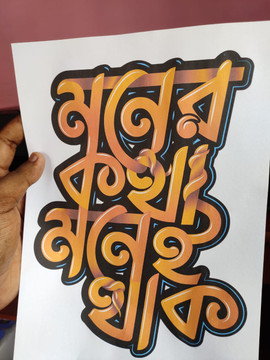 মনের
কথা
মনেই
থাক